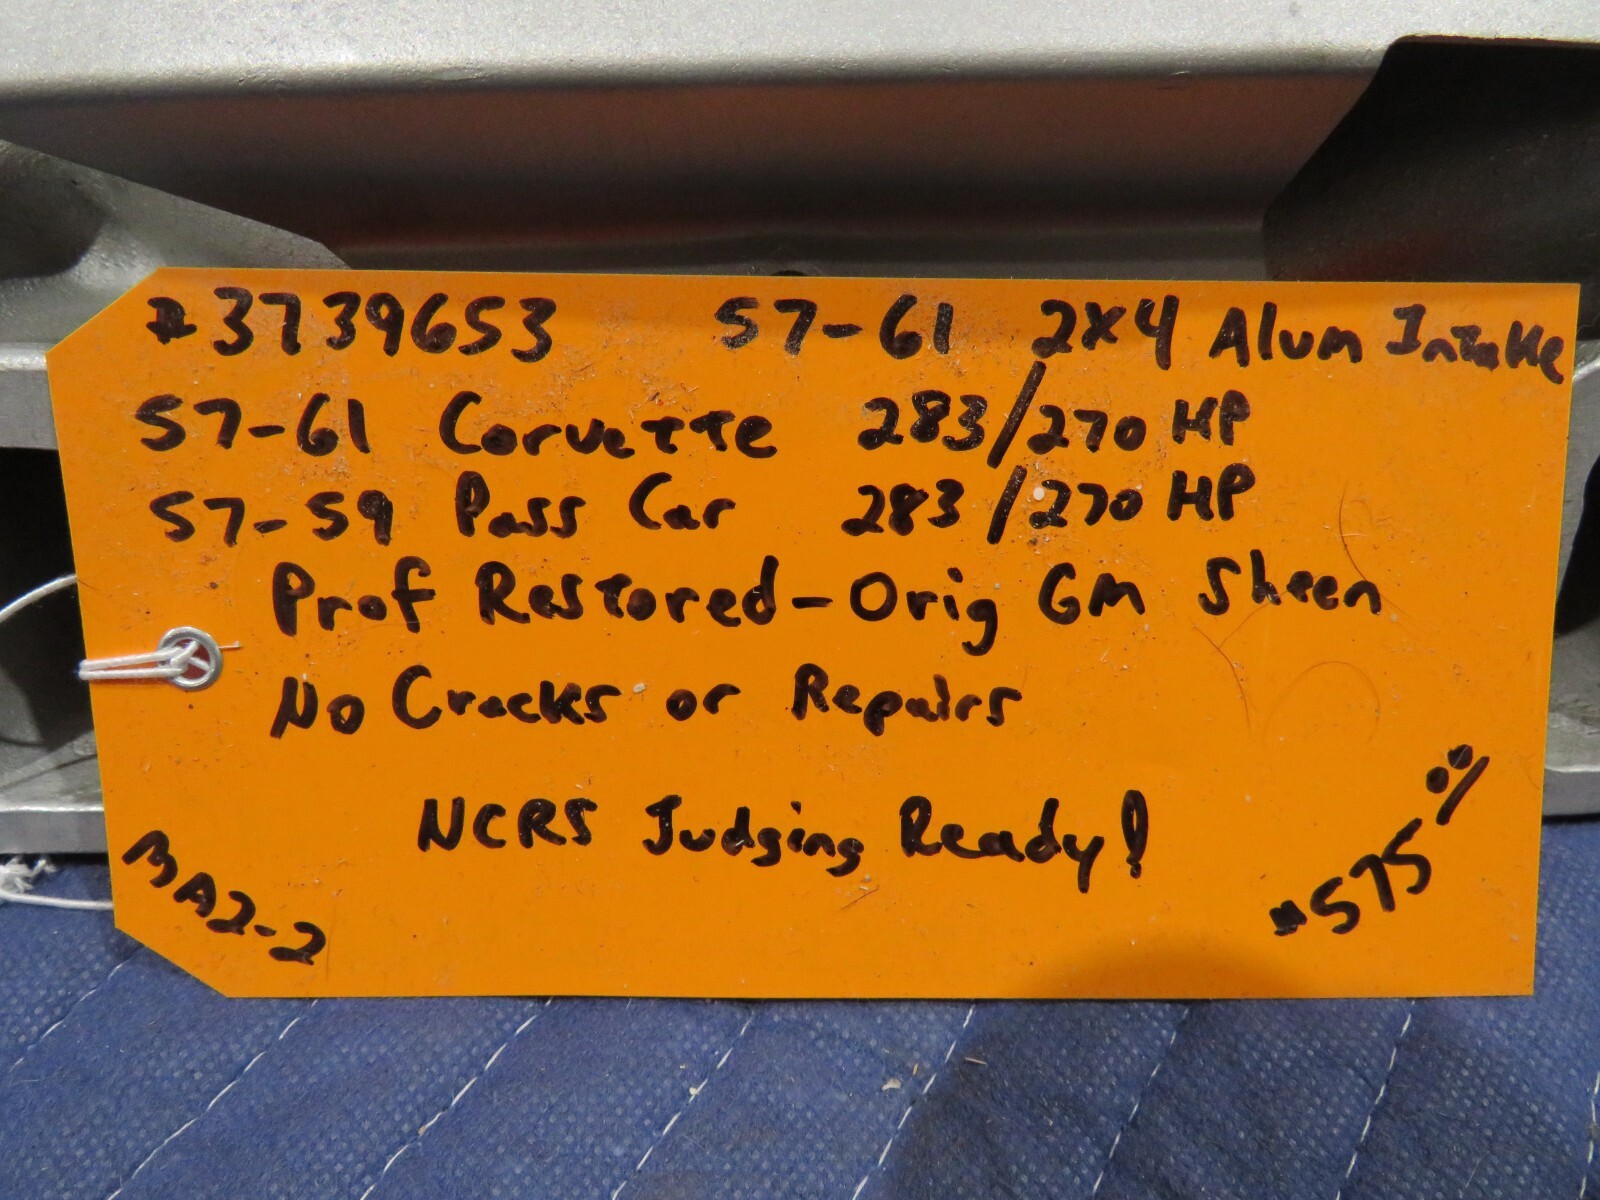 #3739653 57-61 2x4 Alum Intake
57-61 Corvette 283/270 HP
57-59 Pass Car 283/270 HP
Prof Restored-Orig GM Sheen
No Cracks or Repairs
NCRS Judging Ready!
MA2-2
$575 00/